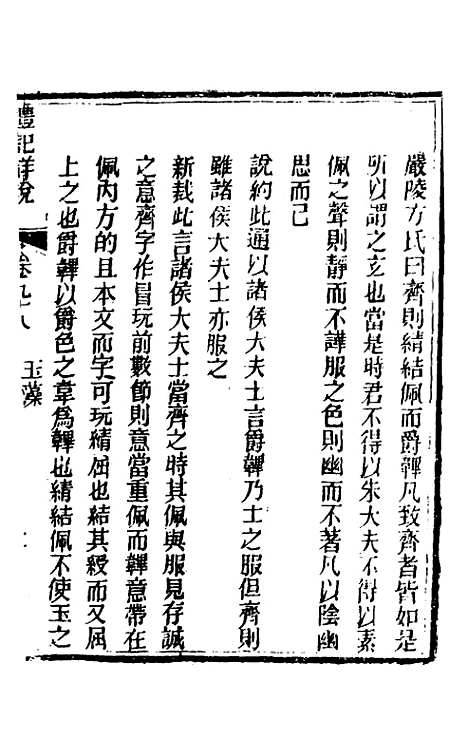 嚴陵方氏曰齊則綪結佩而爵韠凡致齊者皆如是
所以謂之玄也當是時君不得以朱大夫不得以素
佩之聲則靜而不譁服之色則幽而不著凡以陰幽
思而已
說約此通以諸侯大夫士言爵韠乃士之服但齊則
雖諸侯大夫士亦服之
新裁此言諸侯大夫士當齊之時其佩與服見存誠
之意齊字作冒玩前數節則意當重佩而韠意帶在
佩內方的且本文而字可玩綪屈也結其綬而又屈
上之也爵韠以爵色之韋為韠也綪結佩不使玉之
禮記詳說 卷九八 玉藻